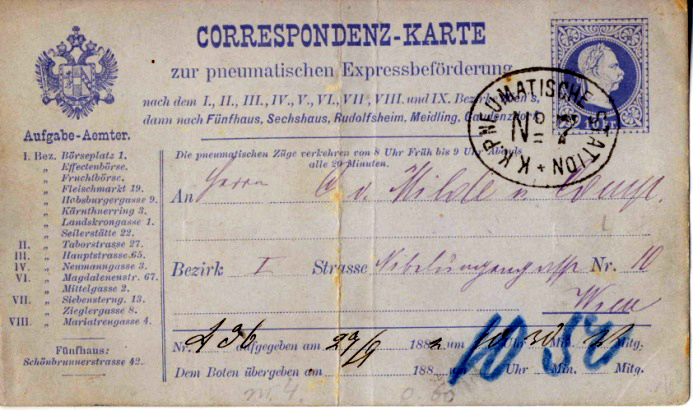 CORRESPONDENZ-KARTE
zur pneumatischen Expressbeförderung
nach dem I., II., III., IV., V., VI., VII., VIII. und IX. Bezirke
dann nach Fünfhaus, Sechshaus, Rudolfsheim, Meidling, Gaudenzdorf
K.K. PNEUMATISCHE STATION
No 7
Aufgabe-Aemter.
I. Bez. Börseplatz 1.
" Effectenbörse.
" Fruchtbörse.
" Fleischmarkt 19.
" Habsburgergasse 9.
" Kärnthnerring 3.
" Landskrongasse 1.
" Seilerstätte 22.
II. " Taborstrasse 27.
III. " Hauptstrasse 65.
IV. " Neumanngasse 3.
VI. " Magdalenenstr. 67.
" Mittelgasse 2.
VII. " Siebensterng. 13.
" Zieglergasse 8.
VIII. " Mariatreugasse 4.
Fünfhaus:
Schönbrunnerstrasse 42.
Die pneumatischen Züge verkehren von 8 Uhr Früh bis 9 Uhr Abends
alle 20 Minuten.
An Herrn
Bezirk I Strasse Nibelungengasse Nr. 10
Wien
Nr. 436 aufgegeben am 29/9 188 um 10 Uhr 30 Min. Mitg.
Dem Boten übergeben am 188 um 10 Uhr 50 Min. Mitg.